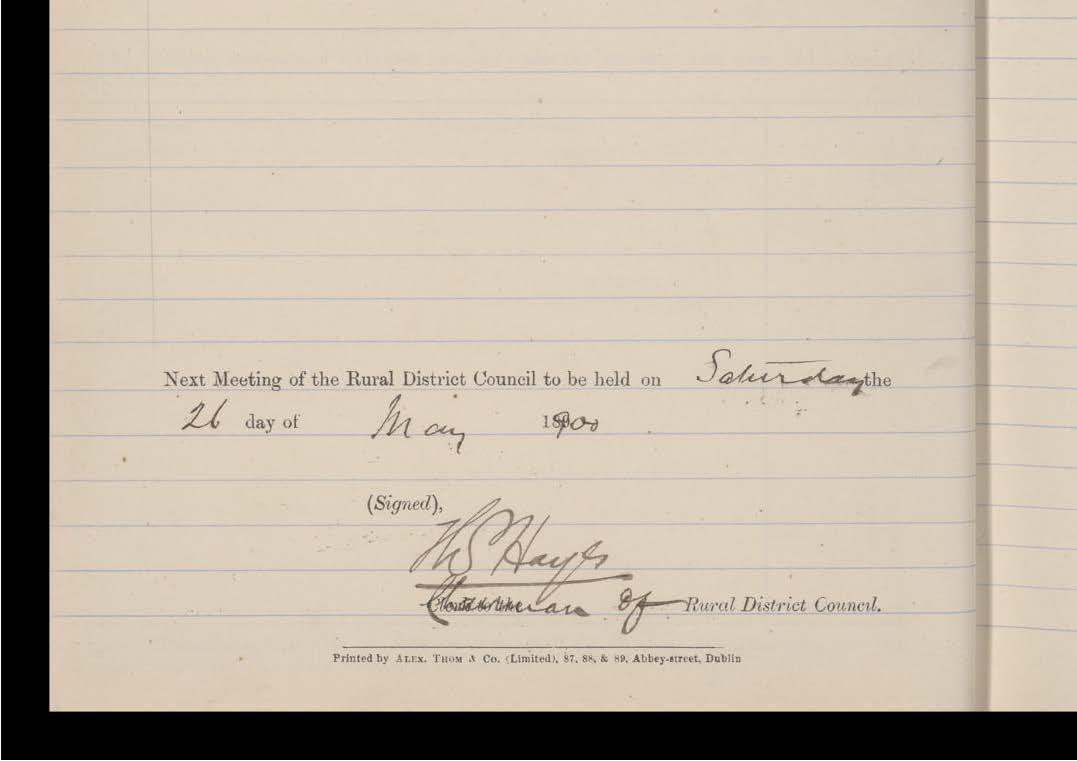 Next Meeting of the Rural District Council to be held on Saturday the
26 day of May 1900
(Signed),
Hayes
Chairman of Rural District Council.
Printed by ALEX. THOM & Co. (Limited), 87, 88, & 89, Abbey-street, Dublin